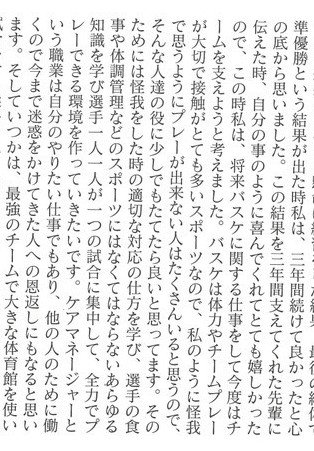 準優勝という結果が出た時私は、三年間続けて良かったと心
の底から思いました。この結果を三年間支えてくれた先輩に
伝えた時、自分の事のように喜んでくれてとても嬉しかった
ので、この時私は、将来バスケに関する仕事をして今度はチ
ームを支えようと考えました。バスケは体力やチームプレー
が大切で接触がとても多いスポーツなので、私のように怪我
で思うようにプレーが出来ない人はたくさんいると思うので、
そんな人達の役に少しでもたてたら良いと思ってます。その
ためには怪我をした時の適切な対応の仕方を学び、選手の食
事や体調管理などのスポーツにはなくてはならないあらゆる
知識を学び選手一人一人が一つの試合に集中して、全力でプ
レーできる環境を作っていきたいです。ケアマネージャーと
いう職業は自分のやりたい仕事でもあり、他の人のために働
くので今まで迷惑をかけてきた人への恩返しにもなると思い
ます。そしていつかは、最強のチームで大きな体育館を使い